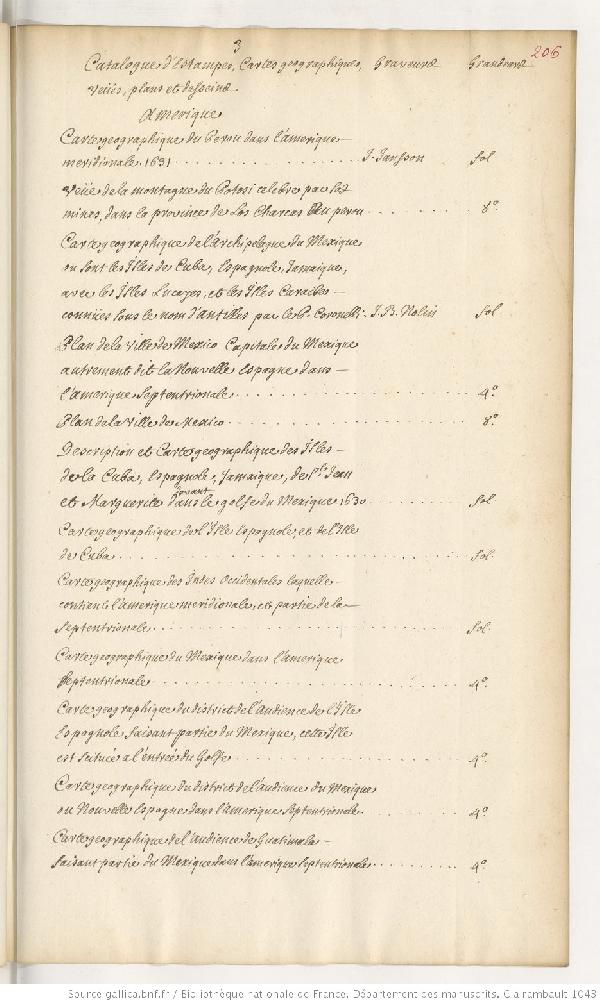 3
206
Catalogue d'Estampes, Cartes geographiques, Graveurs Grandeurs
veües, plans et desseins
Amerique
Carte geographique du Perou dans l'amerique
meridionale. 1631 J. Jansson fol
Veüe de la montagne du Potosi celebre par les
mines, dans la province de Los Charcas au perou 8º
Carte geographique de l'archipelague du Mexique
ou sont les Isles de Cuba, Espagnole, Jamaique,
avec les Isles Lucayes, et les Isles Caraibes
connües sous le nom d'antilles par le P. Coronelli J. B. Nolin fol
Plan de la ville de Mexico Capitale du Mexique
autrement dit la Nouvelle Espagne dans
l'amerique Septentrionale 4º
Plan de la ville de Mexico 8º
Description et Carte geographique des Isles
de la Cuba, Espagnole, Jamaique, de St Jean
et Marguerite dans le golfe du Mexique 1630 fol
Carte geographique de l'Isle Espagnole et de l'Isle
de Cuba fol.
Carte geographique des Indes Occidentales laquelle
contient l'amerique meridionale, et partie de la
Septentrionale fol.
Carte geographique du Mexique dans l'amerique
septentrionale 4º
Carte geographique du district de l'audience de l'Isle
Espagnole faisant partie du Mexique, cette Isle
est située a l'entrée du Golfe 4º
Carte geographique du district de l'audience du Mexique
ou Nouvelle Espagne dans l'amerique Septentrionale 4º
Carte geographique de l'audience de Guatimala
faisant partie du Mexique dans l'amerique septentrionale 4º
Source gallica.bnf.fr / Bibliothèque nationale de France. Département des manuscrits. Clairambault 1043